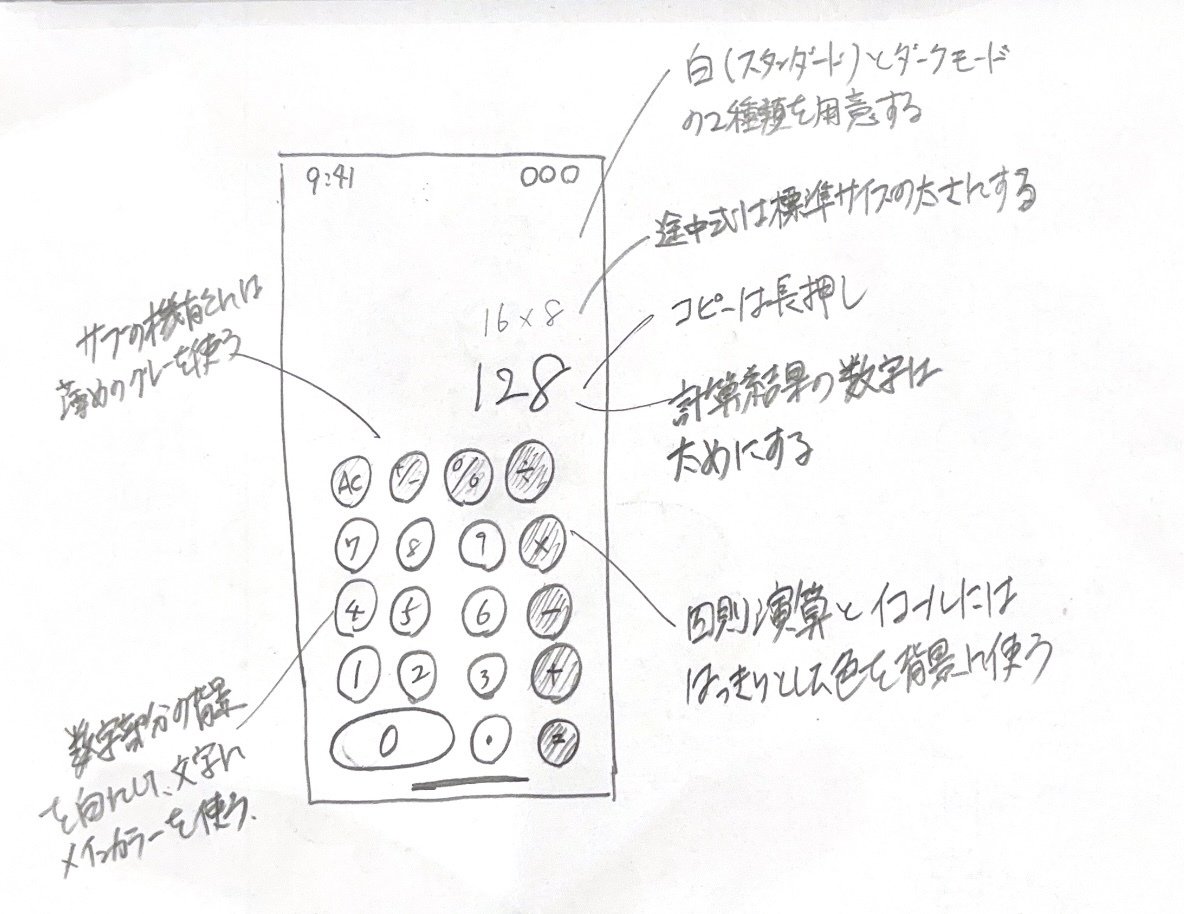 白(スタンダード)とダークモード
の2種類を用意する
9:41
途中式は標準サイズの太さにする
16×8
コピーは長押し
128
計算結果の数字は
太めにする
サブの機能には
薄めのグレーを使う
AC +/- % ÷
7 8 9 ×
4 5 6 −
1 2 3 +
0 . =
四則演算とイコールには
はっきりとした色を背景に使う
数字部分の背景
を白にして、文字に
メインカラーを使う.